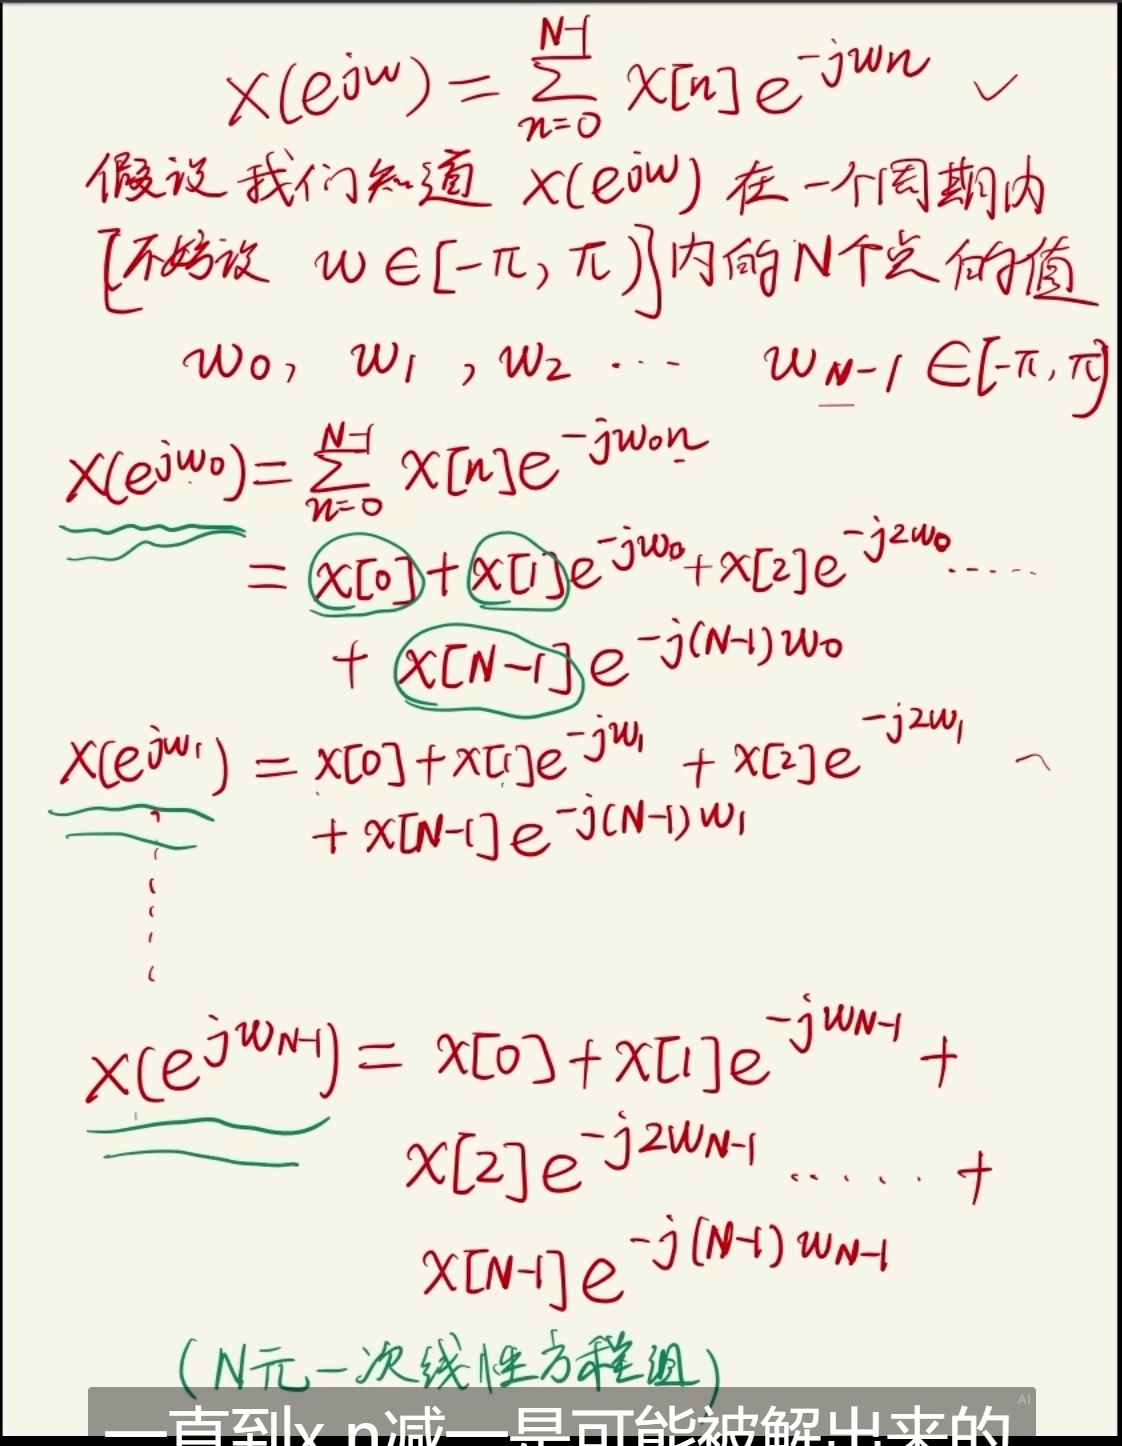 X(e^{jw}) = \sum_{n=0}^{N-1} x[n] e^{-jwn} ✓
假设我们知道 X(e^{jw}) 在一个周期内
[不妨设 w∈[-π, π)]内的N个点的值
w_0, w_1, w_2 ··· w_{N-1}∈[-π, π)
X(e^{jw_0}) = \sum_{n=0}^{N-1} x[n]e^{-jw_0n}
= x[0] + x[1]e^{-jw_0} + x[2]e^{-j2w_0} ······
+ x[N-1]e^{-j(N-1)w_0}
X(e^{jw_1}) = x[0] + x[1]e^{-jw_1} + x[2]e^{-j2w_1}
+ x[N-1]e^{-j(N-1)w_1}
X(e^{jw_{N-1}}) = x[0] + x[1]e^{-jw_{N-1}} +
x[2]e^{-j2w_{N-1}} ······ +
x[N-1]e^{-j(N-1)w_{N-1}}
(N元一次线性方程组)
AI
一直到x n减一是可能被解出来的